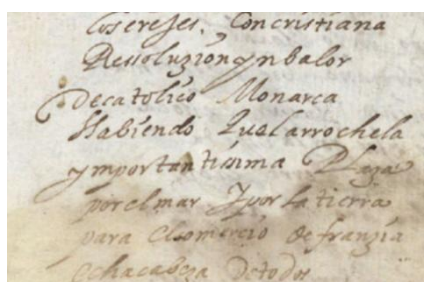 los ereJes. Con cristiana
Ressoluzion yn balor
De catolico Monarca
Habiendo Que larrochela
ymportantissima Plaza
por el mar Y por la tierra
para el Comercio de franzia
echa cabeza De todos